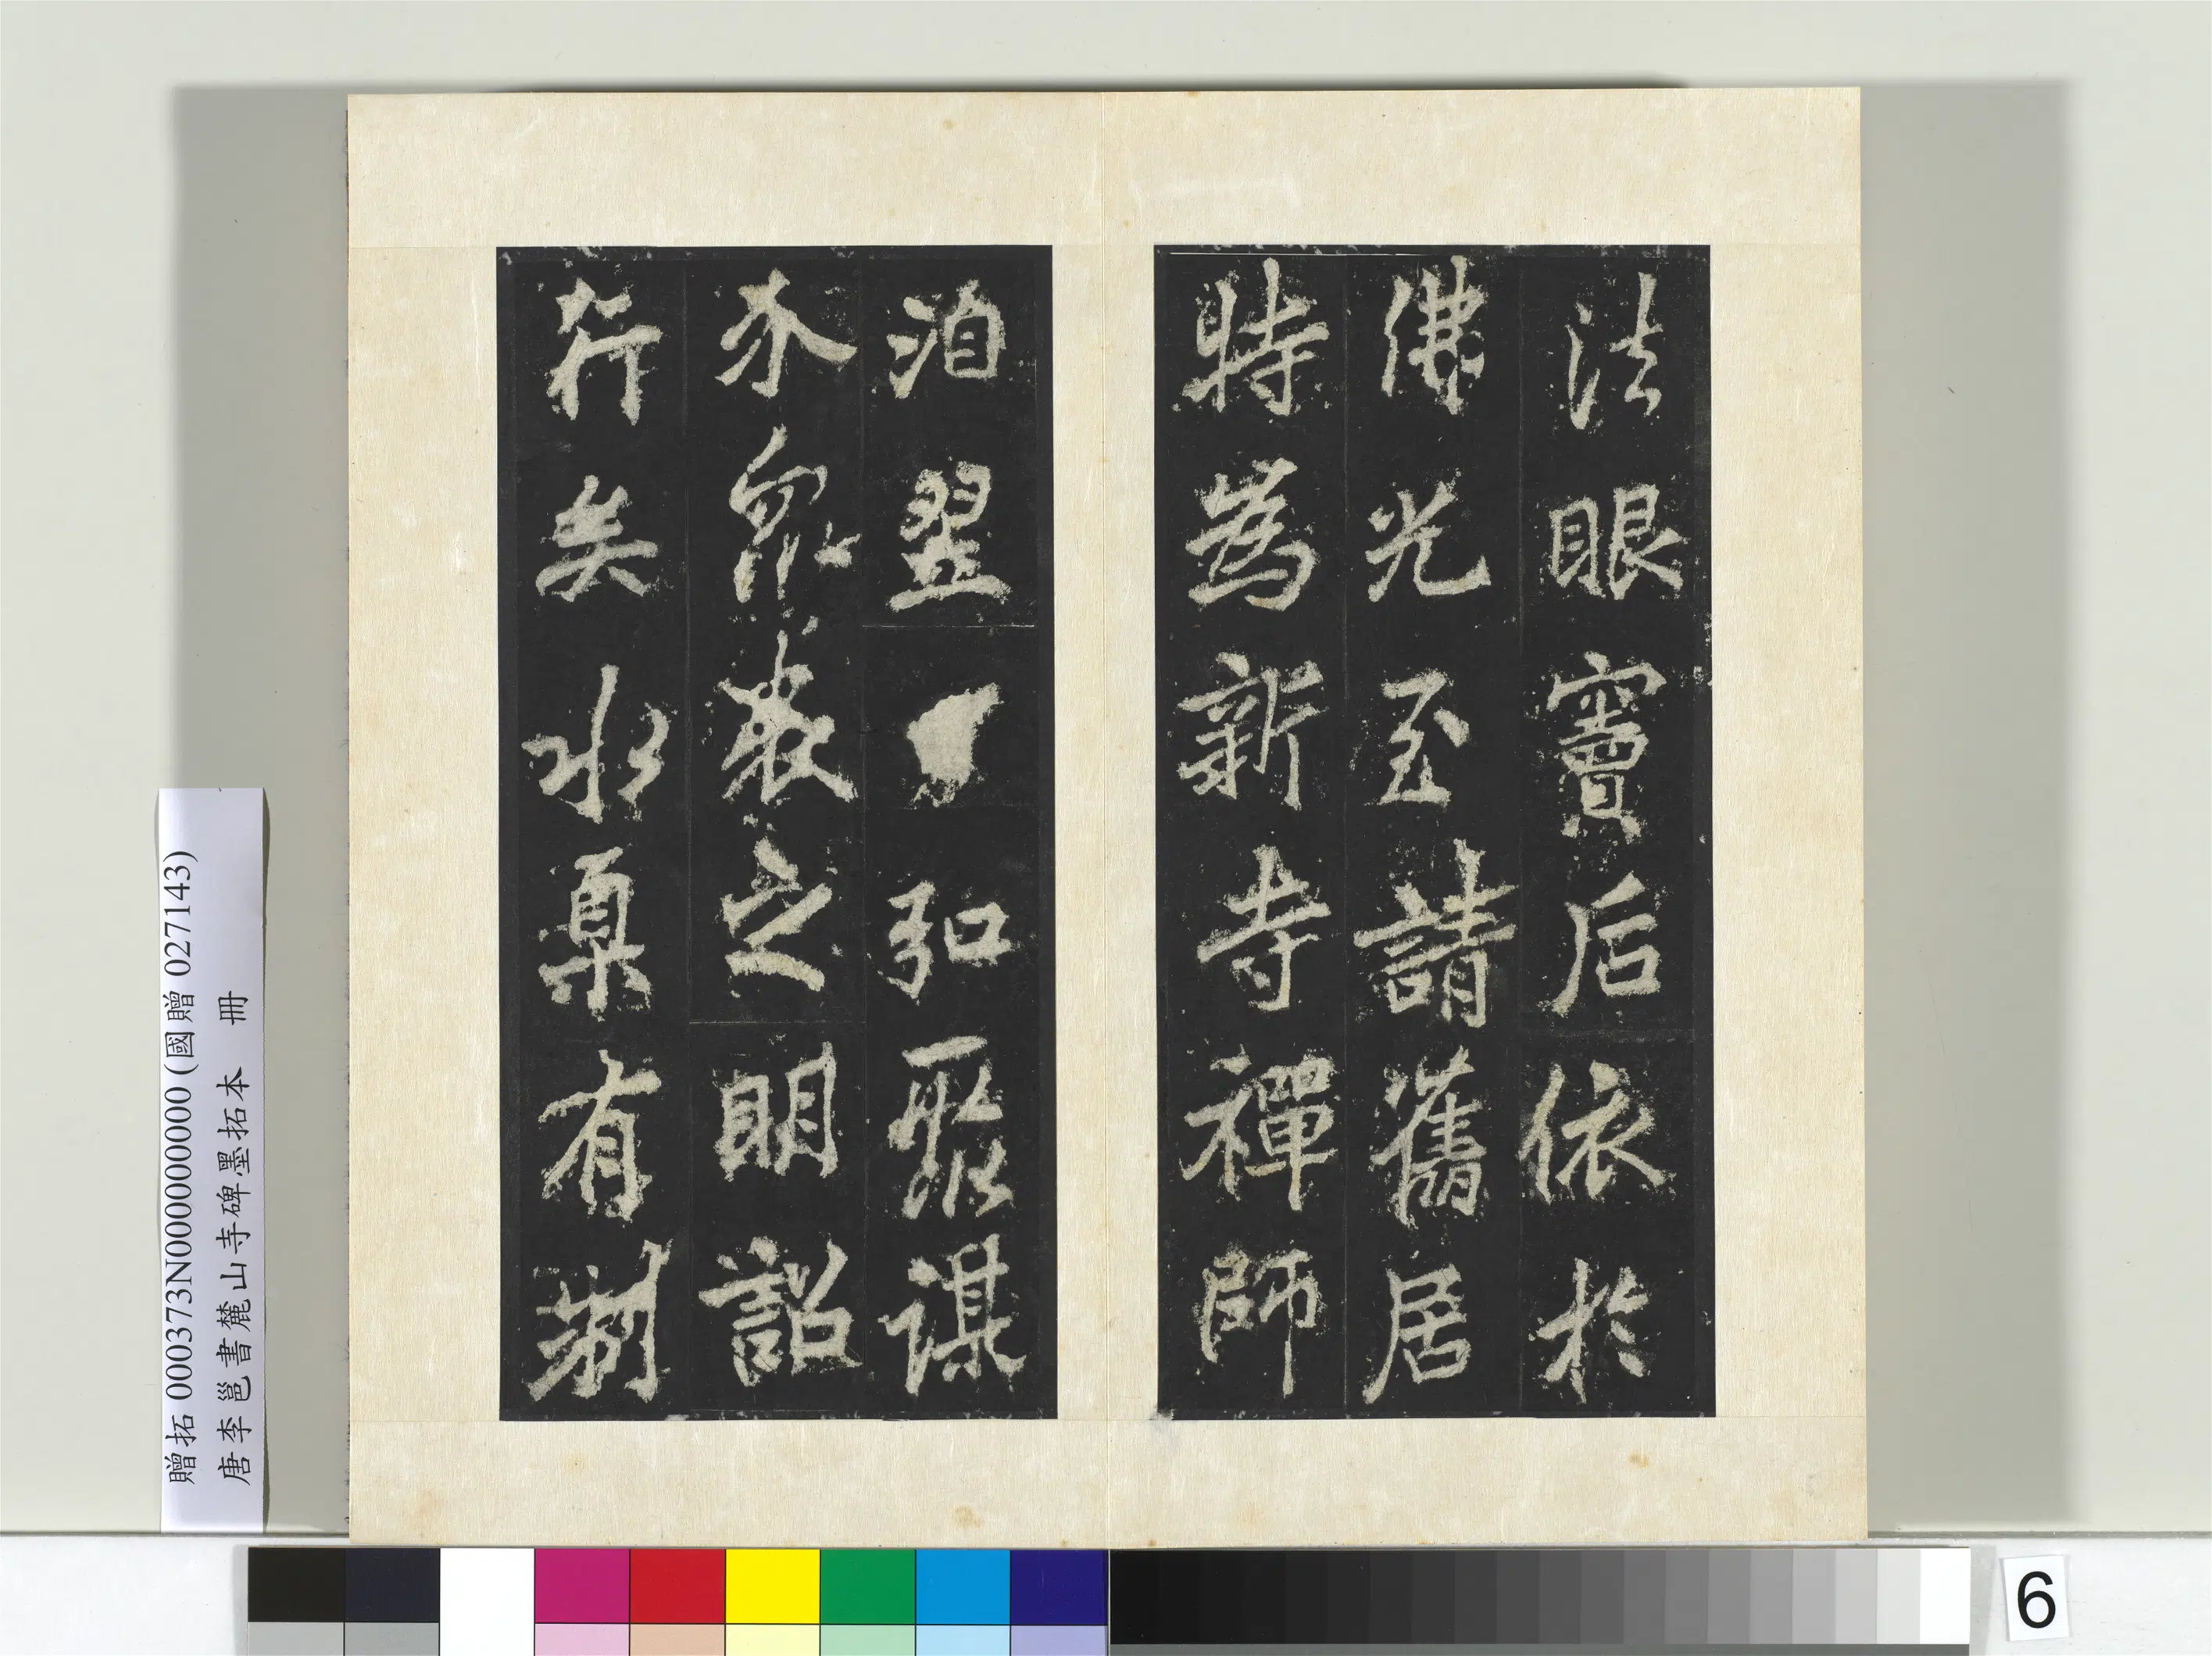 法眼竇后依於
佛光至請舊居
特為新寺禪師
洎翌弘聚謀
介衆表之明詔
行矣水臬有制
贈拓 000373N000000000 (國贈 027143)
唐李邕書麓山寺碑墨拓本 冊
6